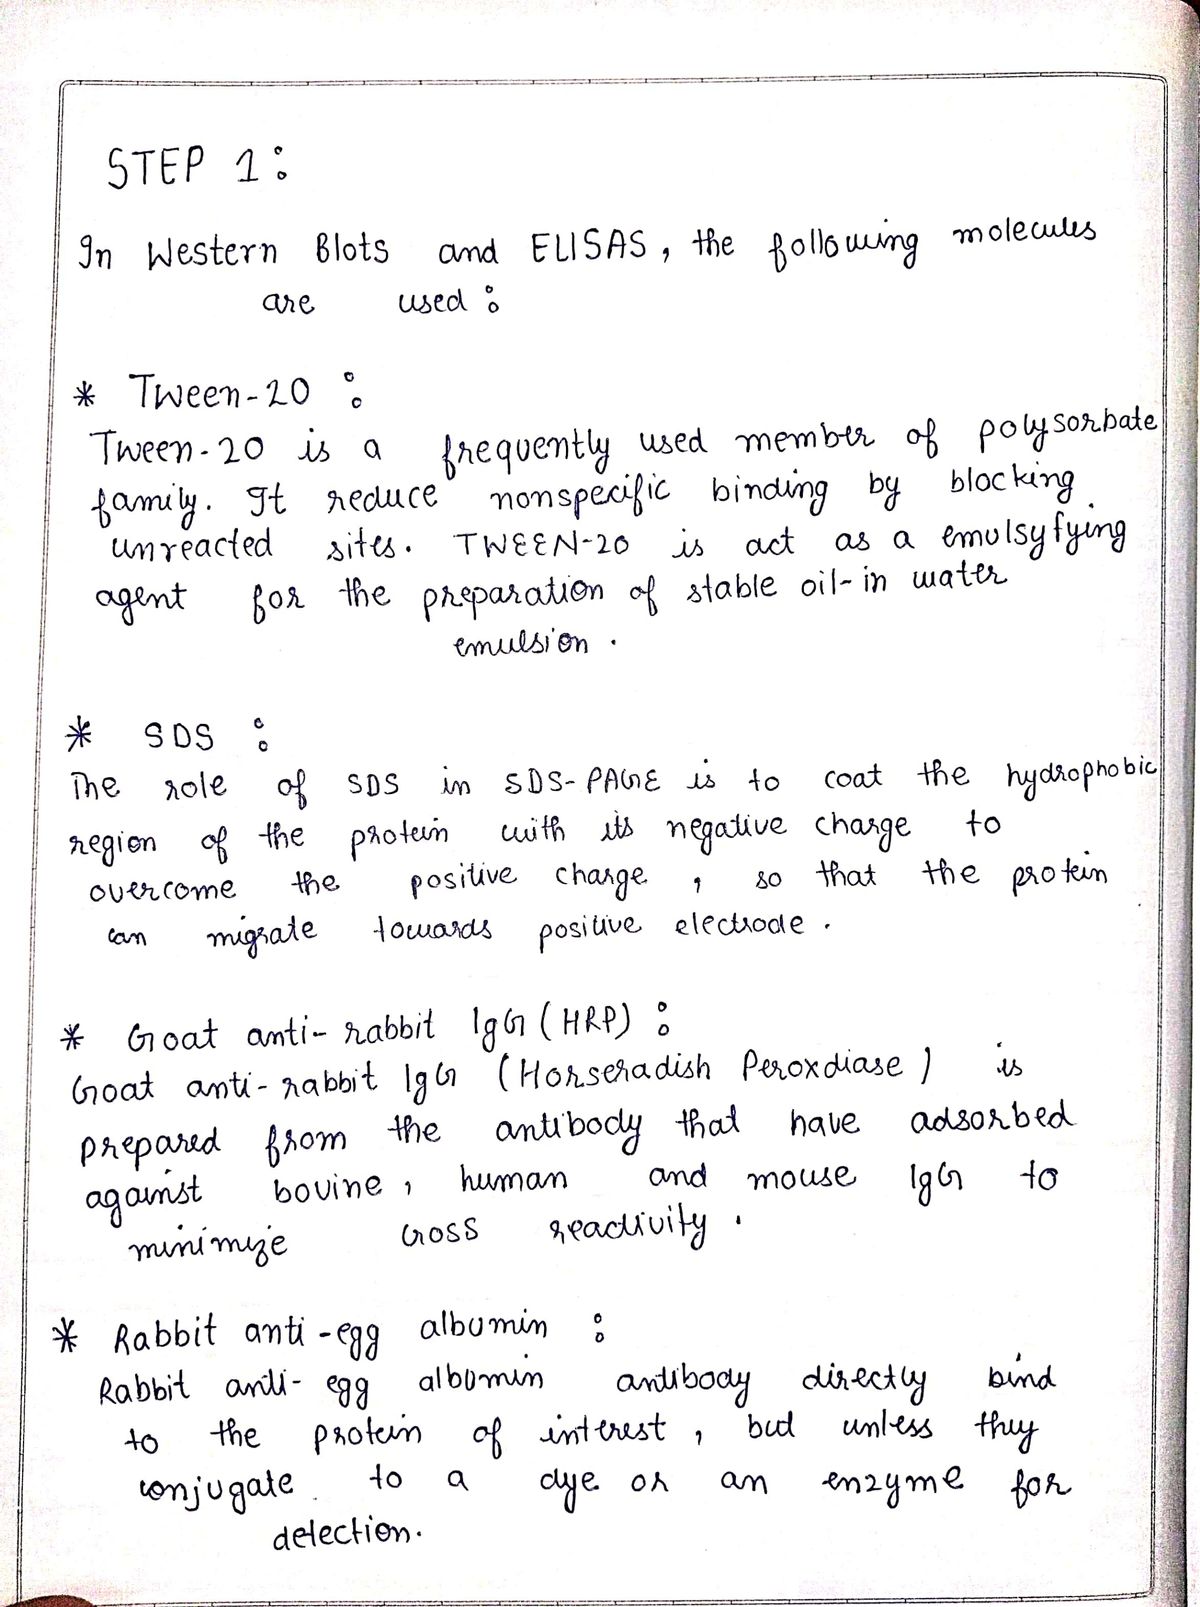 STEP 1:
In Western Blots and ELISAS, the following molecules
are used:
* Tween-20 :
Tween-20 is a frequently used member of polysorbate
family. It reduce nonspecific binding by blocking
unreacted sites. TWEEN-20 is act as a emulsyfying
agent for the preparation of stable oil-in water
emulsion.
* SDS :
The role of SDS in SDS-PAGE is to coat the hydrophobic
region of the protein with its negative charge to
overcome the positive charge, so that the protein
can migrate towards positive electrode.
* Goat anti-rabbit IgG (HRP) :
Goat anti-rabbit IgG (Horseradish Peroxdiase) is
prepared from the antibody that have adsorbed
against bovine, human and mouse IgG to
minimize cross reactivity.
* Rabbit anti-egg albumin :
Rabbit anti-egg albumin antibody directly bind
to the protein of interest, but unless they
conjugate to a dye or an enzyme for
detection.